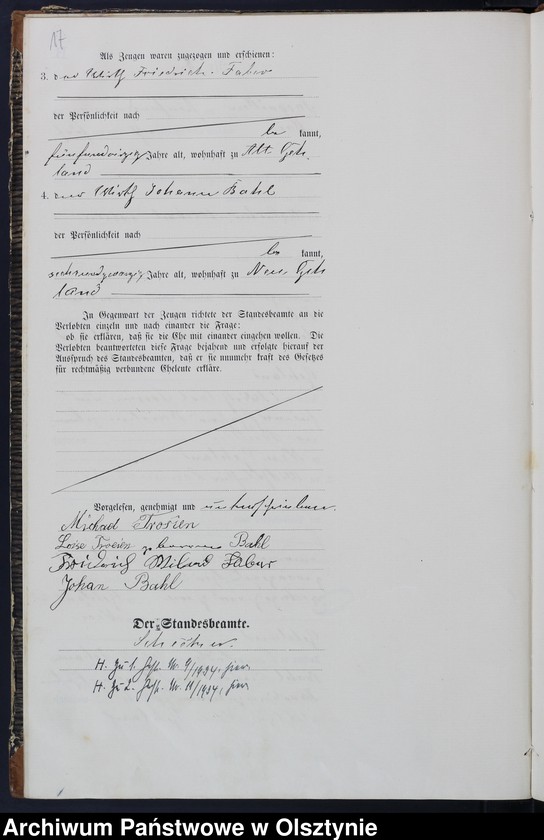 17
Als Zeugen waren zugezogen und erschienen:
3. der Wirth Friedrich Faber
der Persönlichkeit nach
be kannt,
fünfunddreißig Jahre alt, wohnhaft zu Alt Geh-
land
4. der Wirth Johann Bahl
der Persönlichkeit nach
be kannt,
sechsundzwanzig Jahre alt, wohnhaft zu Neu Geh-
land
In Gegenwart der Zeugen richtete der Standesbeamte an die
Verlobten einzeln und nach einander die Frage:
ob sie erklären, daß sie die Ehe mit einander eingehen wollen. Die
Verlobten beantworteten diese Frage bejahend und erfolgte hierauf der
Ausspruch des Standesbeamten, daß er sie nunmehr kraft des Gesetzes
für rechtmäßig verbundene Eheleute erkläre.
Vorgelesen, genehmigt und unterschrieben.
Michael Trosien
Loise Trosien geborene Bahl
Friedrich Faber
Johan Bahl
Der Standesbeamte.
H. zu 1. Nr. 9/1934.
H. zu 2. Nr. 11/1934.
Archiwum Państwowe w Olsztynie